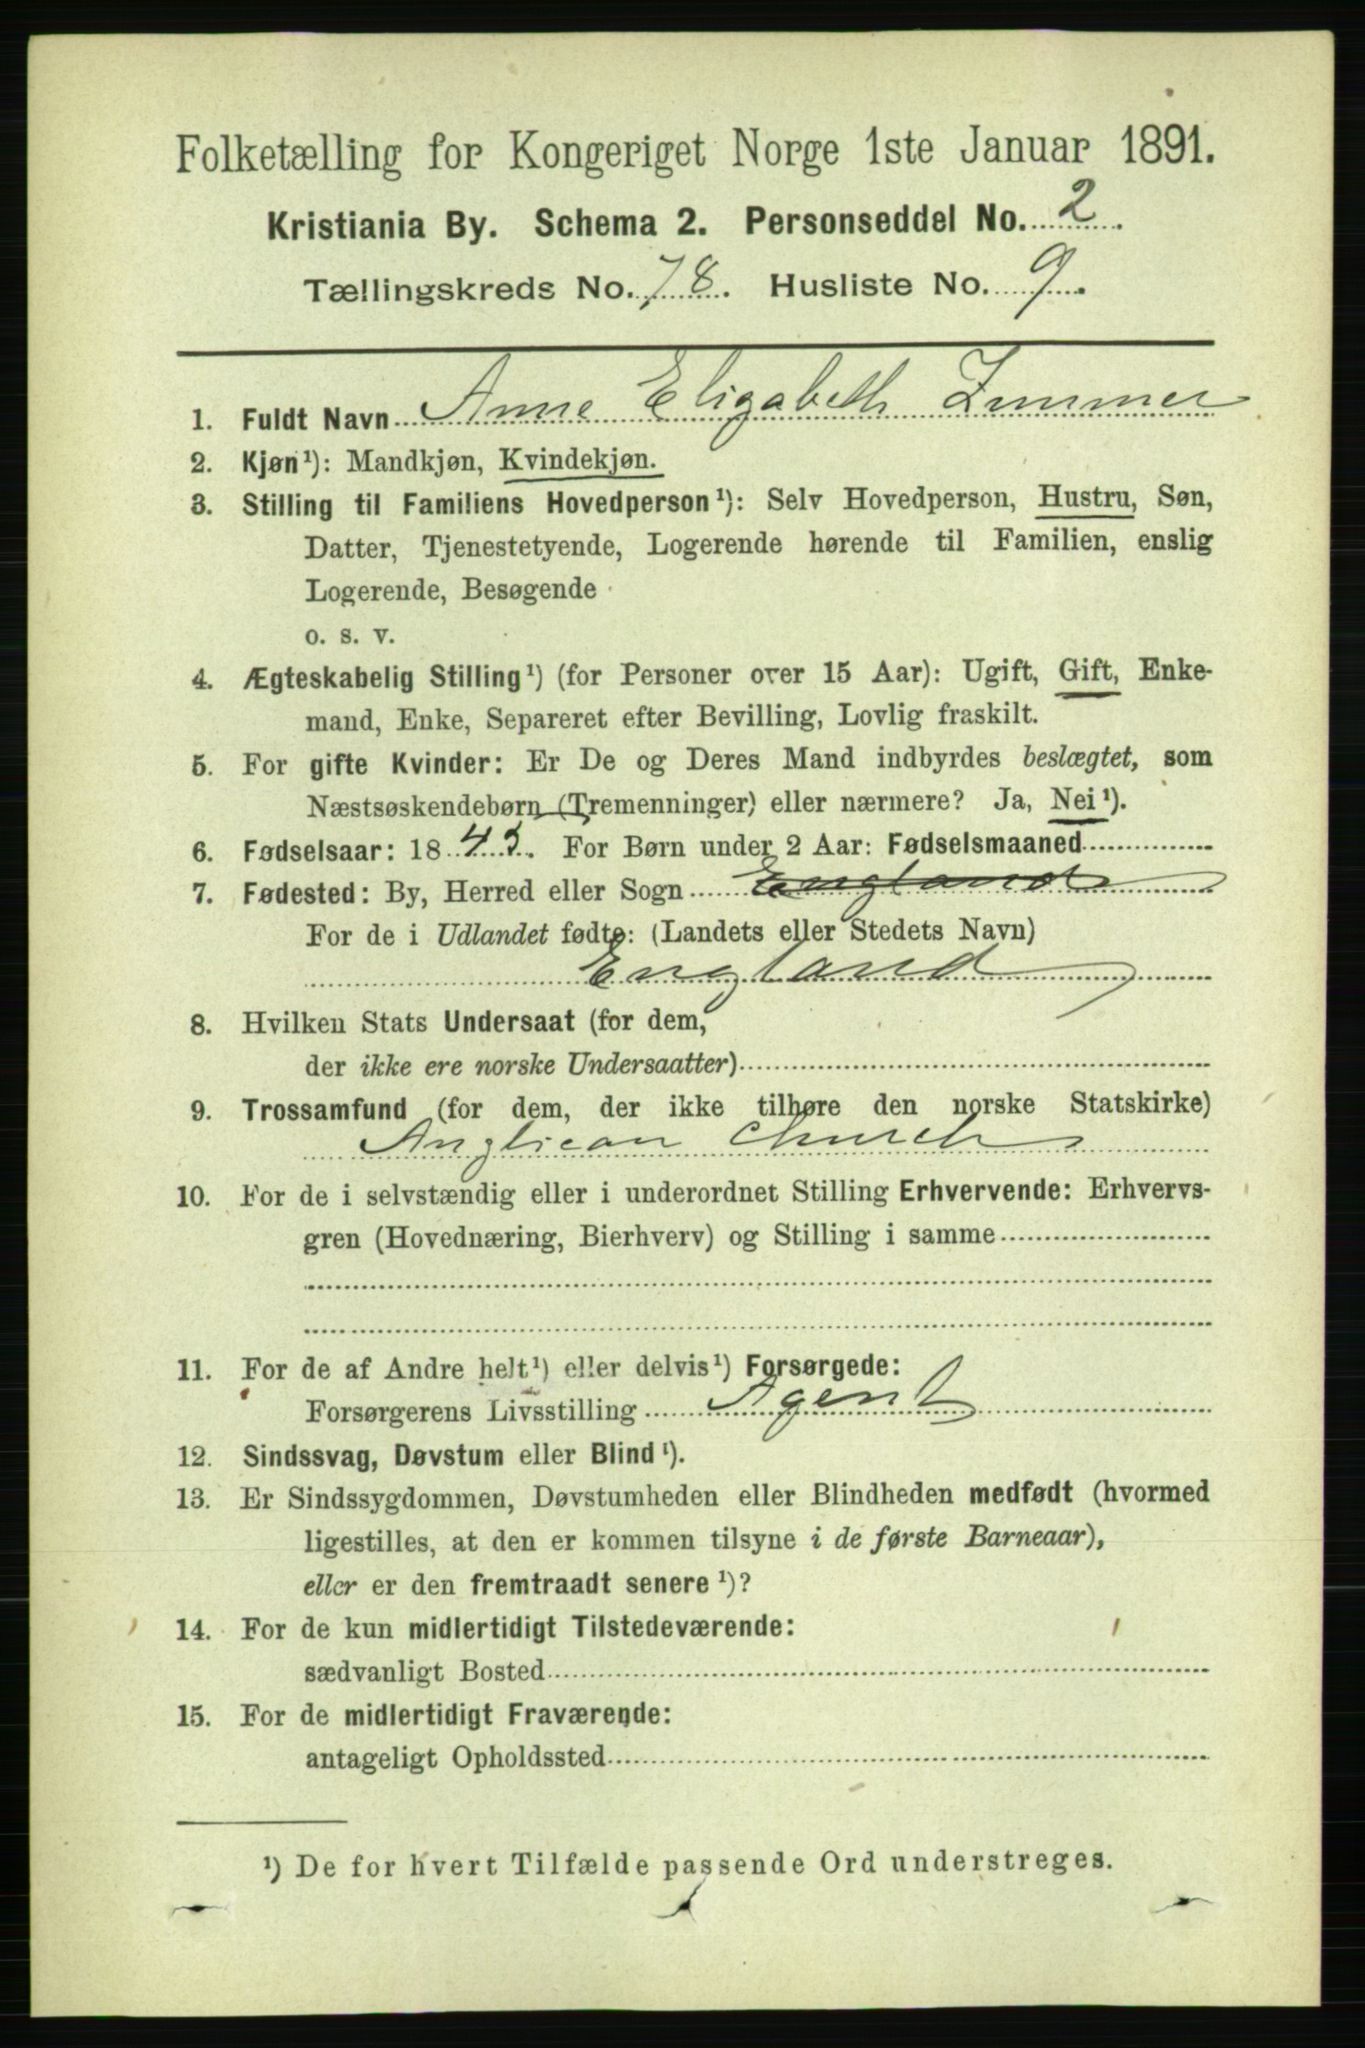 Folketælling for Kongeriget Norge 1ste Januar 1891.
Kristiania By. Schema 2. Personseddel No. 2.
Tællingskreds No. 78. Husliste No. 9.
1. Fuldt Navn Anne Elizabeth Zimmer
2. Kjøn¹): Mandkjøn, Kvindekjøn.
3. Stilling til Familiens Hovedperson¹): Selv Hovedperson, Hustru, Søn,
Datter, Tjenestetyende, Logerende hørende til Familien, enslig
Logerende, Besøgende
o. s. v.
4. Ægteskabelig Stilling¹) (for Personer over 15 Aar): Ugift, Gift, Enke-
mand, Enke, Separeret efter Bevilling, Lovlig fraskilt.
5. For gifte Kvinder: Er De og Deres Mand indbyrdes beslægtet, som
Næstsøskendebørn (Tremenninger) eller nærmere? Ja, Nei¹).
6. Fødselsaar: 1843. For Børn under 2 Aar: Fødselsmaaned
7. Fødested: By, Herred eller Sogn England
For de i Udlandet fødte: (Landets eller Stedets Navn)
England
8. Hvilken Stats Undersaat (for dem,
der ikke ere norske Undersaatter)
9. Trossamfund (for dem, der ikke tilhøre den norske Statskirke)
Anglican Church
10. For de i selvstændig eller i underordnet Stilling Erhvervende: Erhvervs-
gren (Hovednæring, Bierhverv) og Stilling i samme
11. For de af Andre helt¹) eller delvis¹) Forsørgede:
Forsørgerens Livsstilling Agent
12. Sindssvag, Døvstum eller Blind¹).
13. Er Sindssygdommen, Døvstumheden eller Blindheden medfødt (hvormed
ligestilles, at den er kommen tilsyne i de første Barneaar),
eller er den fremtraadt senere¹)?
14. For de kun midlertidigt Tilstedeværende:
sædvanligt Bosted
15. For de midlertidigt Fraværende:
antageligt Opholdssted
¹) De for hvert Tilfælde passende Ord understreges.